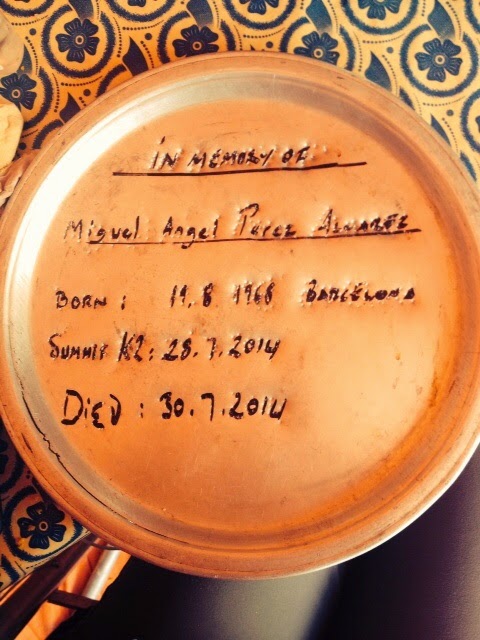 IN MEMORY OF
Miguel Angel Perez Alvarez
BORN : 19.8 1968 BARCELONA
SUMMIT K2: 28.7.2014
DiED : 30.7.2014